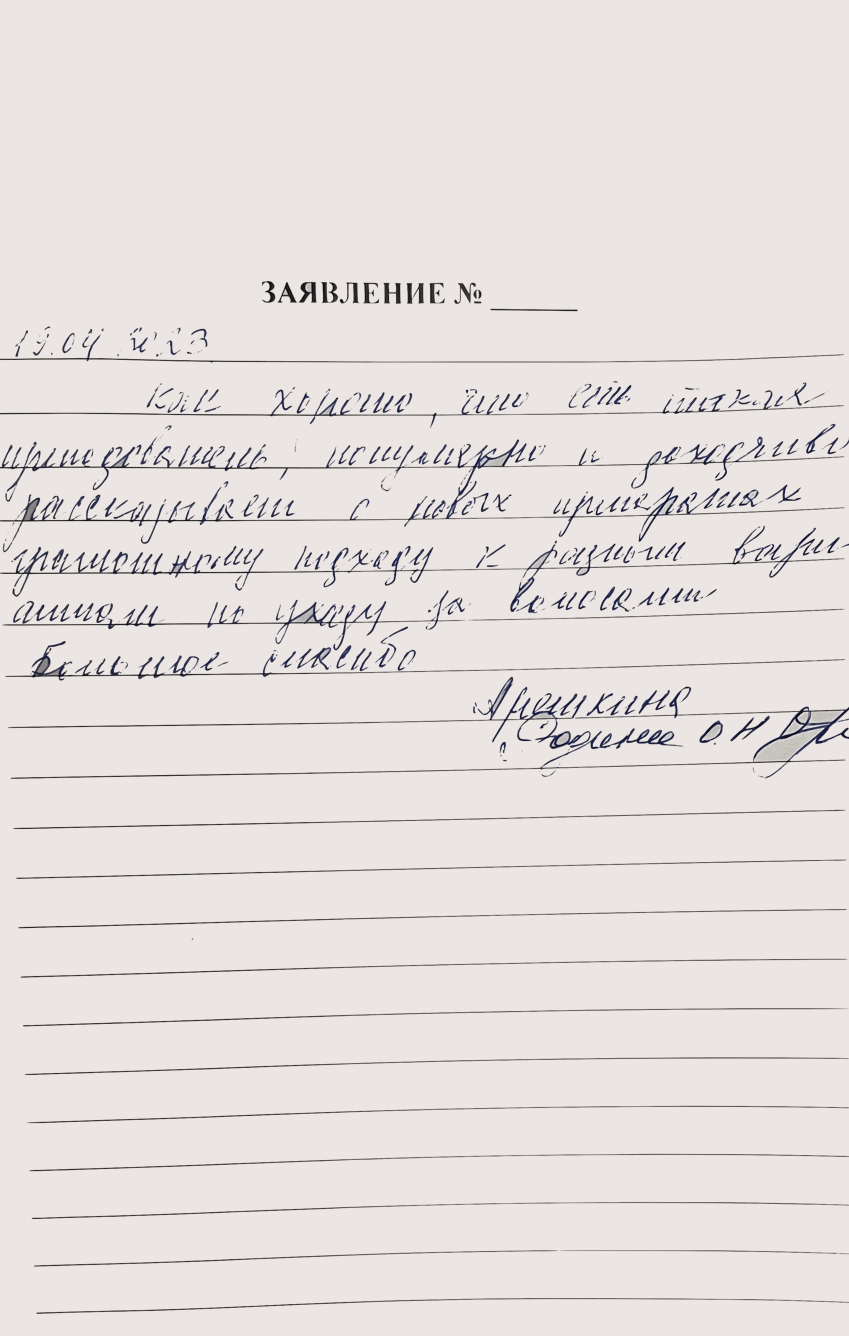 ЗАЯВЛЕНИЕ № ______
19.04 2023
Как хорошо, что есть такая
преподаватель, популярно и доходчиво
рассказывает о новых препаратах
грамотному подходу к разным
по уходу за волосами
Большое спасибо
О.Н